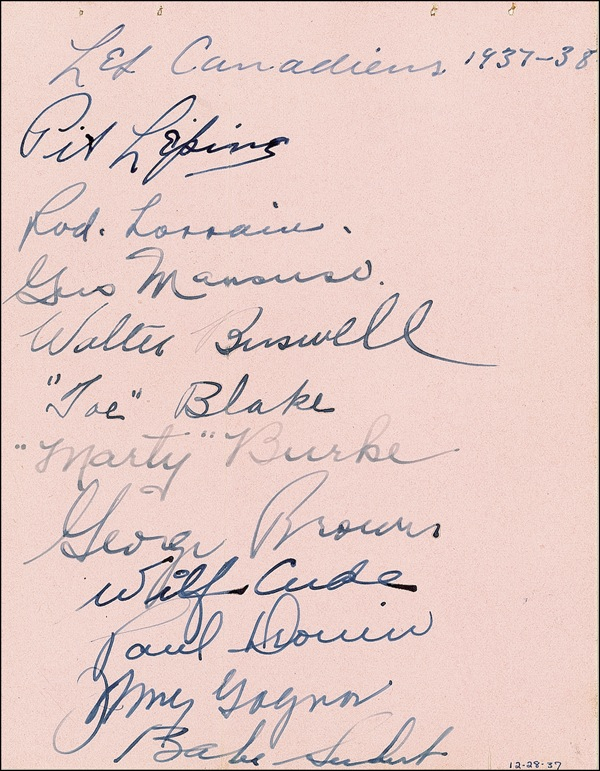 Les Canadiens 1937-38
Pit Lépine
Rod. Lorrain.
Gus Mancuso.
Walter Buswell
"Toe" Blake
"Marty" Burke
George Brown
Wilf Cude
Paul Drouin
Johnny Gagnon
Babe Siebert
12-28-37